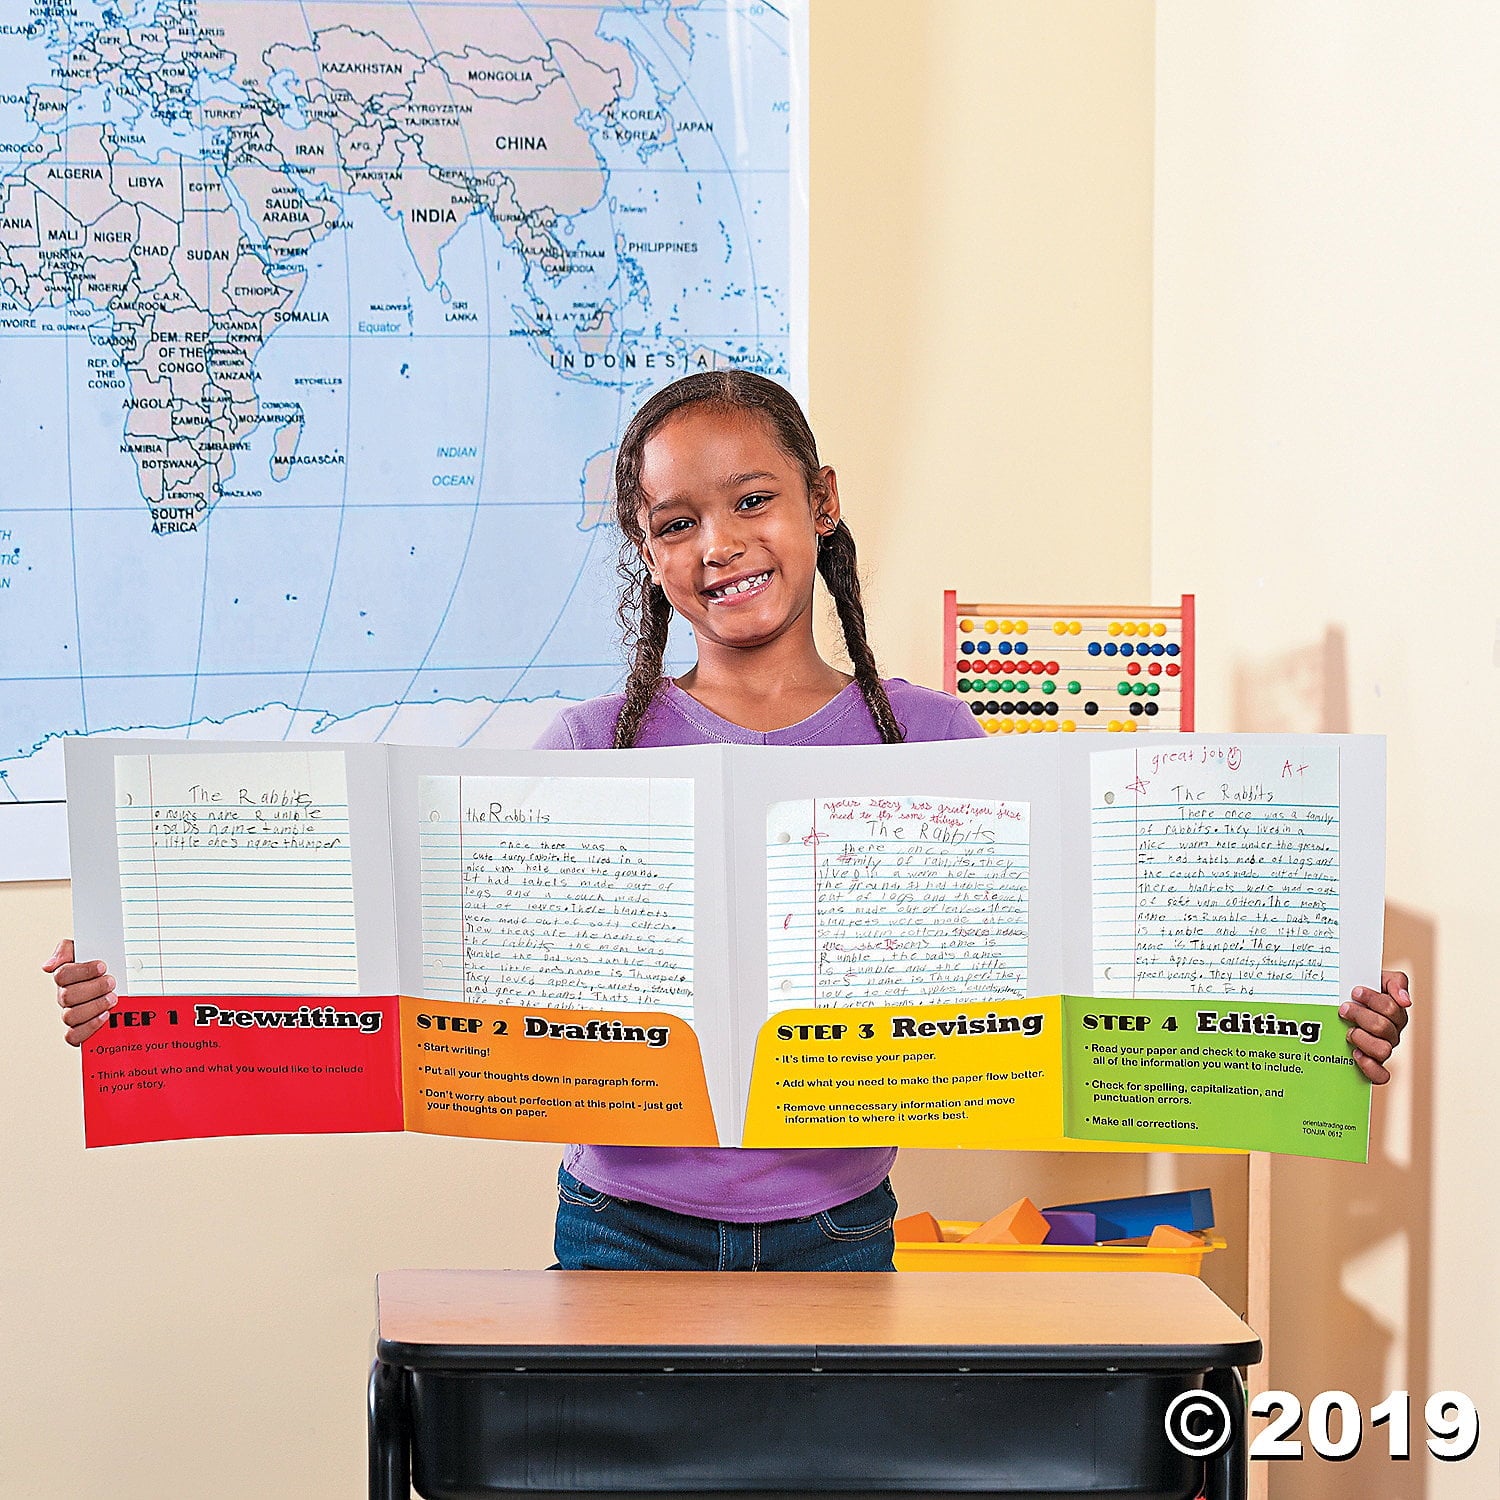 UNITED
KINGDOM
GER.
POL.
BELARUS
UKRAINE
BEL.
FRANCE
ROM.
ITALY
SPAIN
GREECE
TURKEY
KAZAKHSTAN
MONGOLIA
UZB.
KYRGYZSTAN
TAJIKISTAN
TURKM.
N. KOREA
S. KOREA
JAPAN
CHINA
TUNISIA
SYRIA
IRAQ
JOR.
IRAN
AFG.
PAKISTAN
NEPAL
ALGERIA
LIBYA
EGYPT
SAUDI
ARABIA
OMAN
YEMEN
INDIA
BURMA
LAOS
Taiwan
THAILAND
VIETNAM
CAMBODIA
PHILIPPINES
MALI
NIGER
CHAD
SUDAN
BURKINA
FASO
BENIN
GHANA
NIGERIA
C.A.R.
CAMEROON
TOGO
EQ. GUINEA
ETHIOPIA
SOMALIA
MALDIVES
SRI
LANKA
Equator
MALAYSIA
INDONESIA
PAPUA
GABON
REP. OF
THE
CONGO
DEM. REP.
OF THE
CONGO
UGANDA
KENYA
RWANDA
BURUNDI
TANZANIA
SEYCHELLES
COMOROS
ANGOLA
ZAMBIA
MALAWI
MOZAMBIQUE
NAMIBIA
ZIMBABWE
BOTSWANA
MADAGASCAR
LESOTHO
SWAZILAND
SOUTH
AFRICA
INDIAN
OCEAN
The Rabbits
• mom's name Rumble
• Dad's name tumble
• little one's name thumper
STEP 1 Prewriting
• Organize your thoughts.
• Think about who and what you would like to include
in your story.
the Rabbits
once there was a
cute furry rabbit. He lived in a
nice warm hole under the ground.
It had tabels made out of
logs and couch made
out of leaves. There blankets
were made out of soft cotten.
Now theas are the names of
the rabbits the mom was
Rumble the Dad was tumble and
the little one's name is Thumper.
They loved appels, carrots,
and green beans! Thats the
life of the rabbits
STEP 2 Drafting
• Start writing!
• Put all your thoughts down in paragraph form.
• Don't worry about perfection at this point - just get
your thoughts on paper.
your story was great! you just
need to fix some things
The Rabbits
there once was
a family of rabbits. They
lived in a warm hole under
the ground. It had tables made
out of logs and the couch
was made out of leaves. there
blankets were made out of
soft warm cotten.
the mom's name is
Rumble, the Dad's name
Is tumble and the little
one's Name is Thumper! They
love to eat apples carrots
STEP 3 Revising
• It's time to revise your paper.
• Add what you need to make the paper flow better.
• Remove unnecessary information and move
information to where it works best.
great job
A+
The Rabbits
There once was a family
of rabbits. They lived in a
nice warm hole under the ground.
It had tabels made of logs and
the couch was made out of leaves.
There blankets were made out
of soft warm cotten. The mom's
name is Rumble the Dad's name
is tumble and the little one's
name is Thumper! They love to
eat apples, carrots,
green beans. They love there life!
The End
STEP 4 Editing
• Read your paper and check to make sure it contains
all of the information you want to include.
• Check for spelling, capitalization, and
punctuation errors.
• Make all corrections.
orientaltrading.com
TONJIA 0612
© 2019